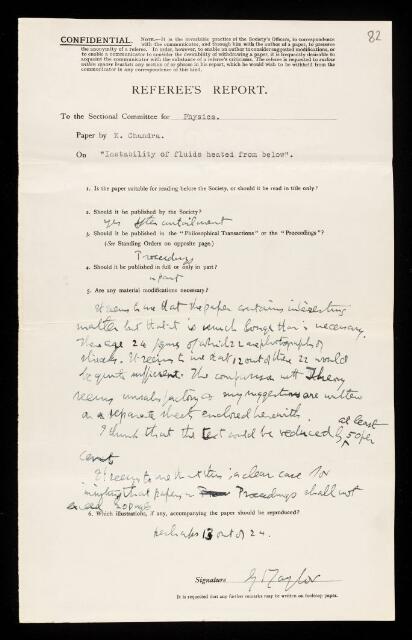 82
CONFIDENTIAL. NOTE.—It is the invariable practice of the Society's Officers, in correspondence
with the communicator, and through him with the author of a paper, to preserve
the anonymity of a referee. In order, however, to enable an author to consider suggested modifications, or
to enable a communicator to consider the desirability of withdrawing a paper, it is frequently desirable to
acquaint the communicator with the substance of a referee's criticisms. The referee is requested to enclose
within square brackets any section of or phrase in his report, which he would wish to be withheld from the
communicator in any correspondence of this kind.
REFEREE'S REPORT.
To the Sectional Committee for Physics.
Paper by K. Chandra.
On "Instability of fluids heated from below".
1. Is the paper suitable for reading before the Society, or should it be read in title only?
2. Should it be published by the Society?
yes after curtailment
3. Should it be published in the "Philosophical Transactions" or the "Proceedings"?
(See Standing Orders on opposite page.)
Proceedings
4. Should it be published in full or only in part?
in part
5. Are any material modifications necessary?
It seems to me that the paper contains interesting
matter but that it is much longer than is necessary.
There are 24 figures of which 22 are photographs of
streaks. It seems to me that 12 out of these 22 would
be quite sufficient. The comparison with Theory
seems unsatisfactory & my suggestions are written
on a separate sheet enclosed herewith.
I think that the text could be reduced by at least 50 per
cent
It seems to me that this is a clear case for
that papers in Proceedings shall not
exceed 20 pages
6. Which illustrations, if any, accompanying the paper should be reproduced?
perhaps 13 out of 24.
Signature G I Taylor
It is requested that any further remarks may be written on foolscap paper.